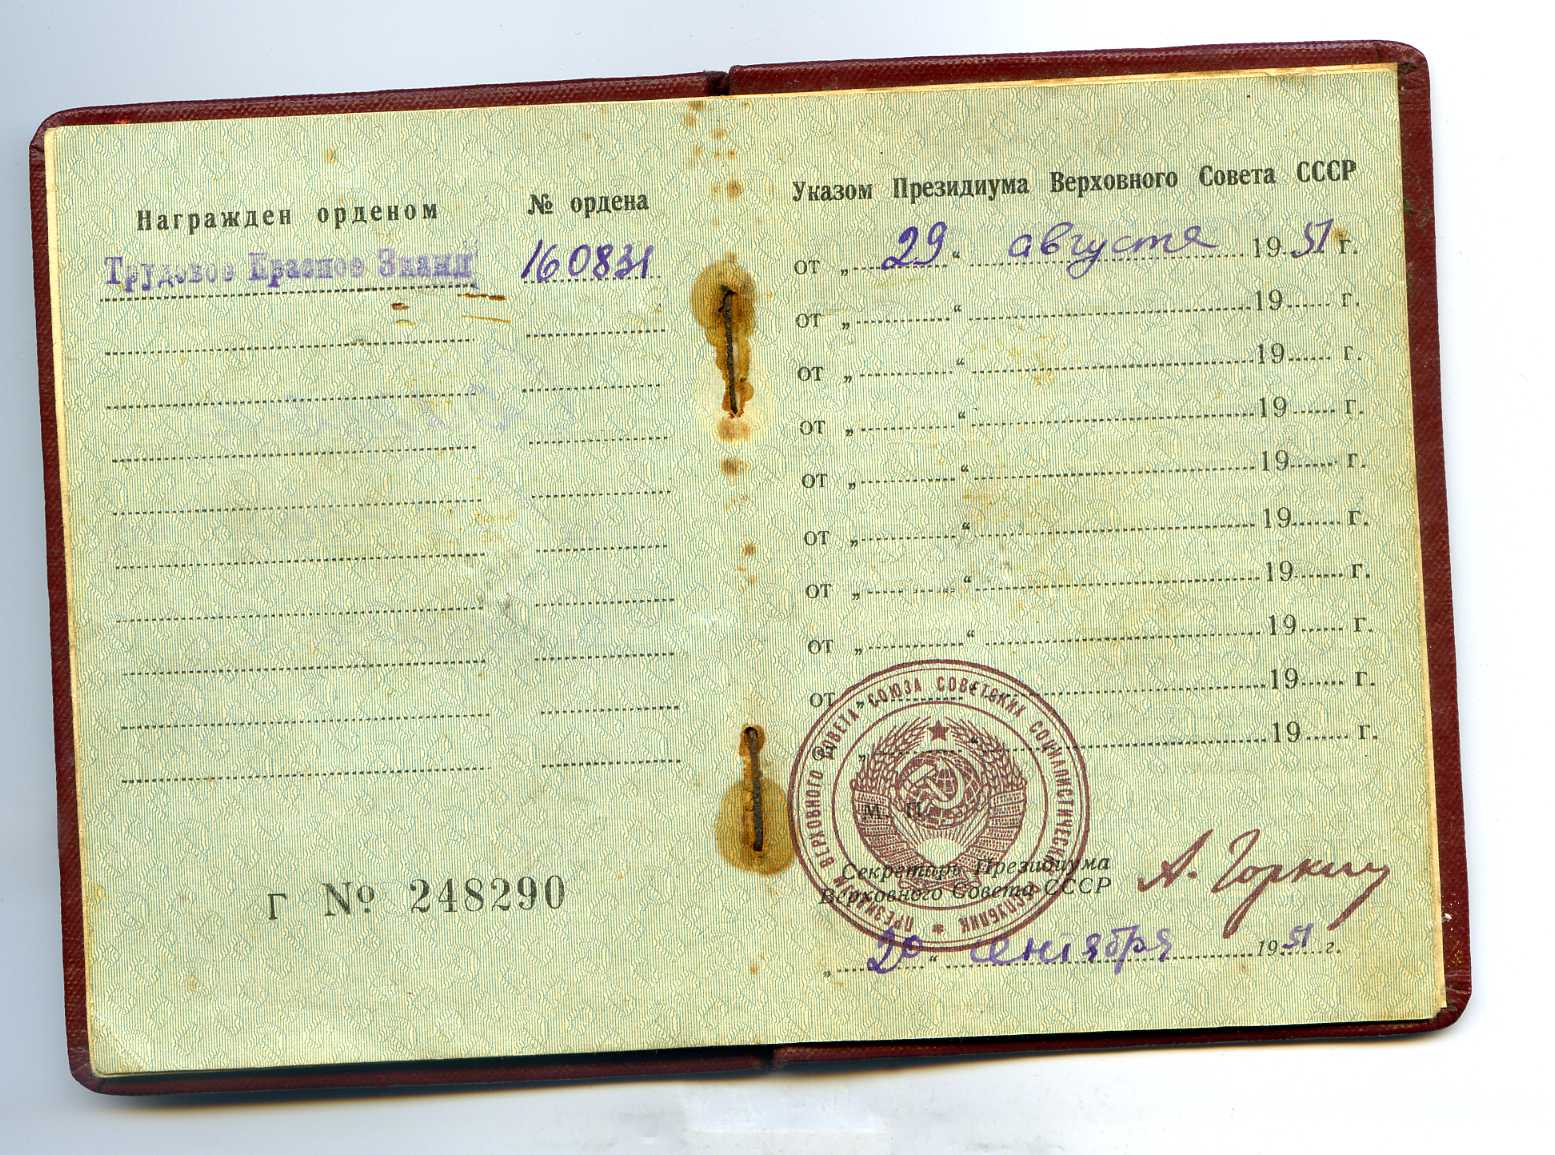 Награжден орденом
№ ордена
Трудовое Красное Знамя
160831
Г № 248290
Указом Президиума Верховного Совета СССР
от „ 29 “ августа 1951 г.
от „ “ 19 г.
от „ “ 19 г.
от „ “ 19 г.
от „ “ 19 г.
от „ “ 19 г.
от „ “ 19 г.
от „ “ 19 г.
от „ “ 19 г.
„ “ 19 г.
ПРЕЗИДИУМ ВЕРХОВНОГО СОВЕТА СОЮЗА СОВЕТСКИХ СОЦИАЛИСТИЧЕСКИХ РЕСПУБЛИК
М. П.
Секретарь Президиума
Верховного Совета СССР
А. Горкин
„ 20 “ сентября 1951 г.